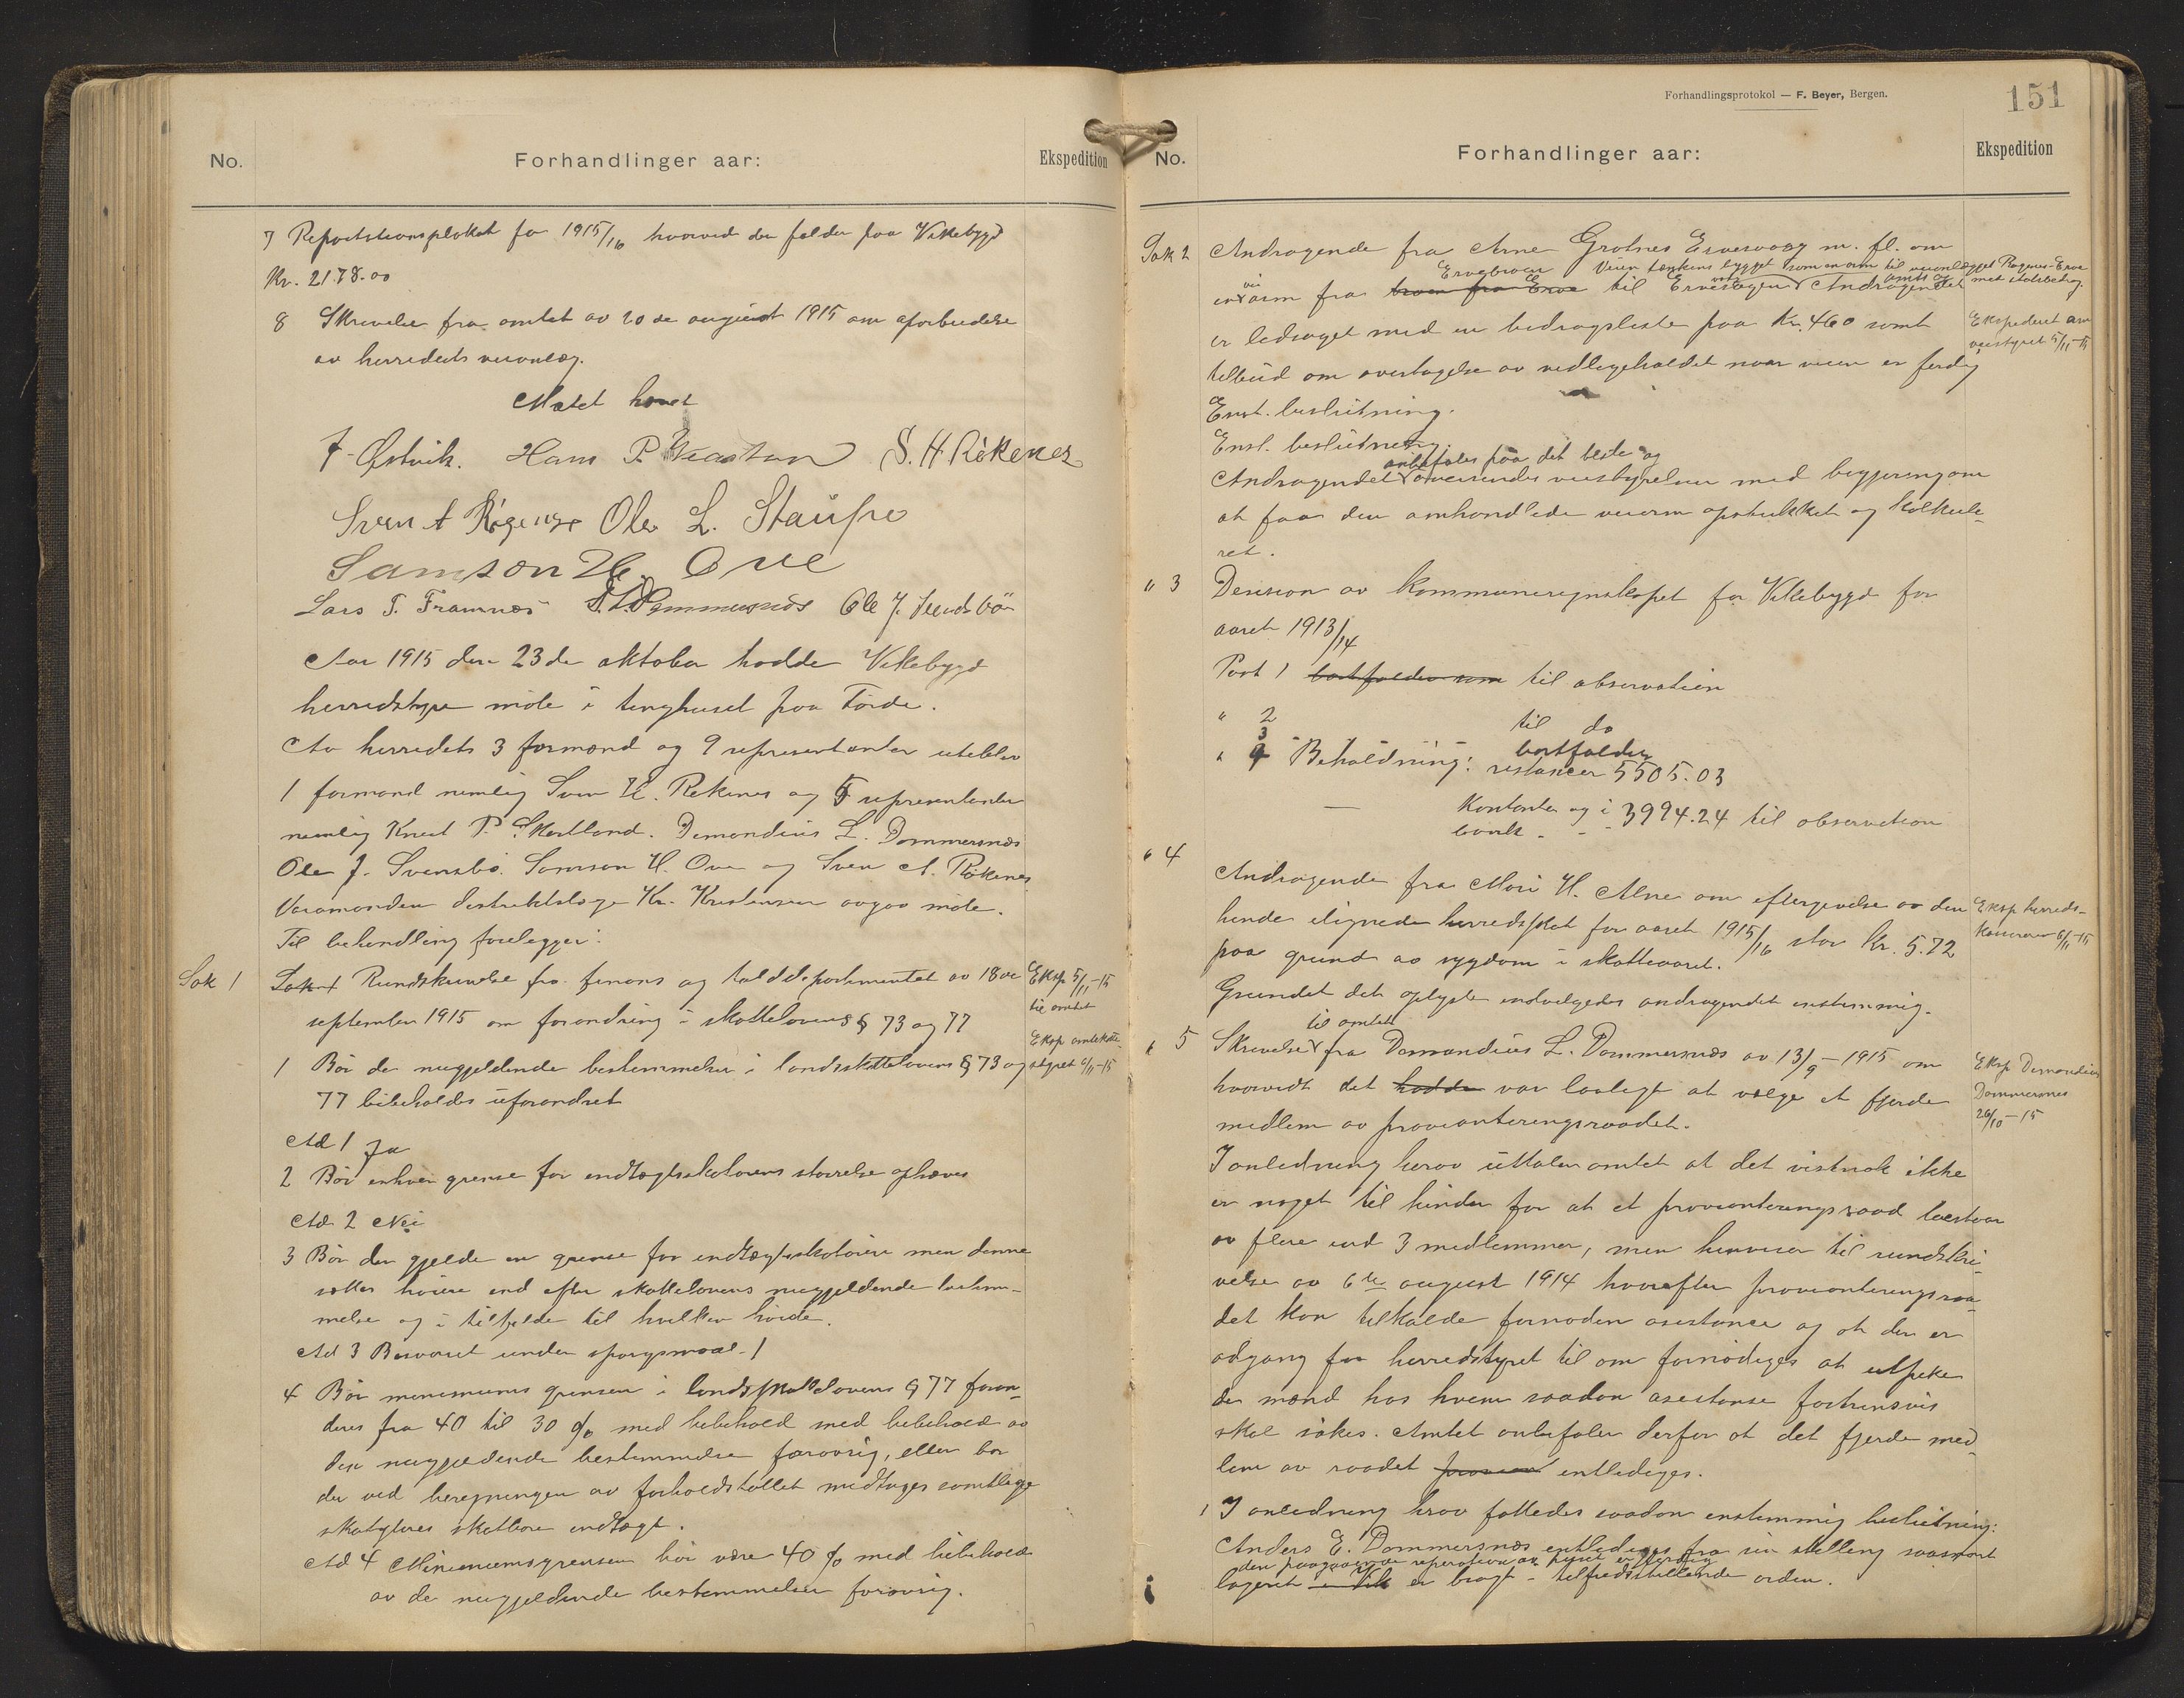 No. Forhandlinger aar: Ekspedition
7 Repartitionsplakat for 1915/16 hvorved der falder paa Vikebygd
Kr. 2178.00
8 Skrivelse fra amtet av 20de august 1915 om utforbedelse
av herredets veianlæg.
Møtet hævet
F. Østvik. Hans P. S. H. Rökenes
Sven A Rögenes Ole L. Staupe
Samson H. Ove
Lars T. Framnes D. L. Dommersnæs Ole J. Svendsbö
Aar 1915 den 23de oktober hadde Vikebygd
herredstyre möte i tinghuset paa Förde.
Av herredets 3 formænd og 9 representanter uteblev
1 formand nemlig Sven H. Rökenes og 5 representanter
nemlig Knut P. Skartland. Demondius L. Dommersnæs
Ole J. Svensbö. Samson H. Ove og Sven A. Rökenes
Varamanden distriktslæge Kr. Kristensen avgav möte.
Til behandling forelegger:
Sak 1 Sak 1 Rundskrivelse fra finans og tolddepartementet av 18de
september 1915 om forandring i skattelovens § 73 og 77
Eksp 5/11-15
til amtet
Eksp amtskatte-
styret 6/11-15
1 Bör de nugjeldende bestemmelser i landsskattelovens § 73 og
77 bibeholdes uforandret
Ad 1 Ja
2 Bör enhver grense for indtægtsskatörens störrelse ophæves
Ad 2 Nei
3 Bör der gjelde en grense for indtægtsskatören men denne
sættes höiere end efter skattelovens nugjeldende bestem-
melse og i tilfælde til hvilken höide.
Ad 3 Besvaret under spörgsmaal 1
4 Bör minimums grensen i landsskattelovens § 77 foran-
dres fra 40 til 30 % med bibehold med bibehold av
den nugjeldende bestemmelse forövrig, eller bör
der ved beregningen av forholdstallet medtages samtlige
skatyteres skatbare indtægt.
Ad 4 Minimumsgrensen bör være 40 % med bibehold
av de nugjeldende bestemmelser forövrig.
Forhandlingsprotokol — F. Beyer, Bergen.
151
No. Forhandlinger aar: Ekspedition
Sak 2 Andragende fra Arne Grotnes Ervesvaag m. fl. om
Ervebroen Veien tænkes bygget som en arm til veianlægget Rognes-Erve
amts og met statsbidrag.
en vei arm fra broen fra Erve til Ervesvaagen Andragendet
er ledsaget med en bidragsliste paa Kr. 460 samt
Ekspederet am
veistyret 5/11-15
tilbud om overtagelse av vedligeholdet naar veien er ferdig
Enst. beslutning.
Enst. beslutning:
anbefales paa det beste og
Andragendet oversendes veistyrelsen med begjering om
at faa den omhandlede veiarm opstukket og kalkule-
ret.
" 3 Desision av kommuneregnskapet for Vikebygd for
aaret 1913/14
Post 1 bortfalder som til observation
" 2 til do
3 bortfalder
" 4 Beholdning: restancer 5505.03
— Kontanter og i
bank - - - 3994.24 til observation
" 4 Andragende fra Mari H. Alne om eftergivelse av den
hende ilignede herredsskat for aaret 1915/16 stor Kr. 5.72
paa grund av sygdom i skatteaaret.
Eksp herreds-
kasserer 6/11-15
Grundet det oplyste indvilgedes andragendet enstemmig.
til amtet
" 5 Skrivelse fra Demondius L. Dommersnæs av 13/9-1915 om
hvorvidt det hadde var lovligt at vælge et fjerde
medlem av provianteringsraadet.
Eksp Demondius
Dommersnes
26/10-15
I anledning herav uttaler amtet at det vistnok ikke
er noget til hinder for at et provianteringsraad bestaar
av flere end 3 medlemmer, men henviser til rundskri-
velse av 6te august 1914 hvorefter provianteringsraa-
det kan tilkalde fornöden asistance og at der er
adgang for herredstyret til om fornödiges at utpeke
de mænd hos hvem saadan asistanse fortrinsvis
skal sökes. Amtet anbefaler derfor at det fjerde med-
lem av raadet entlediges.
I anledning herav fattedes saadan enstemmig beslutning:
Anders E. Dommersnæs entlediges fra sin stilling saasnart
den paagaaende reperation av huset er færdig
lageret er bragt i tilfredsstillende orden.